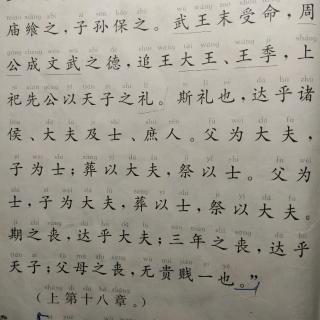 庙飨之，子孙保之。武王末受命，周
公成文武之德，追王大王、王季，上
祀先公以天子之礼。斯礼也，达乎诸
侯、大夫及士、庶人。父为大夫，
子为士；葬以大夫，祭以士。父为
士，子为大夫，葬以士，祭以大夫。
期之丧，达乎大夫；三年之丧，达乎
天子；父母之丧，无贵贱一也。”
（上第十八章。）